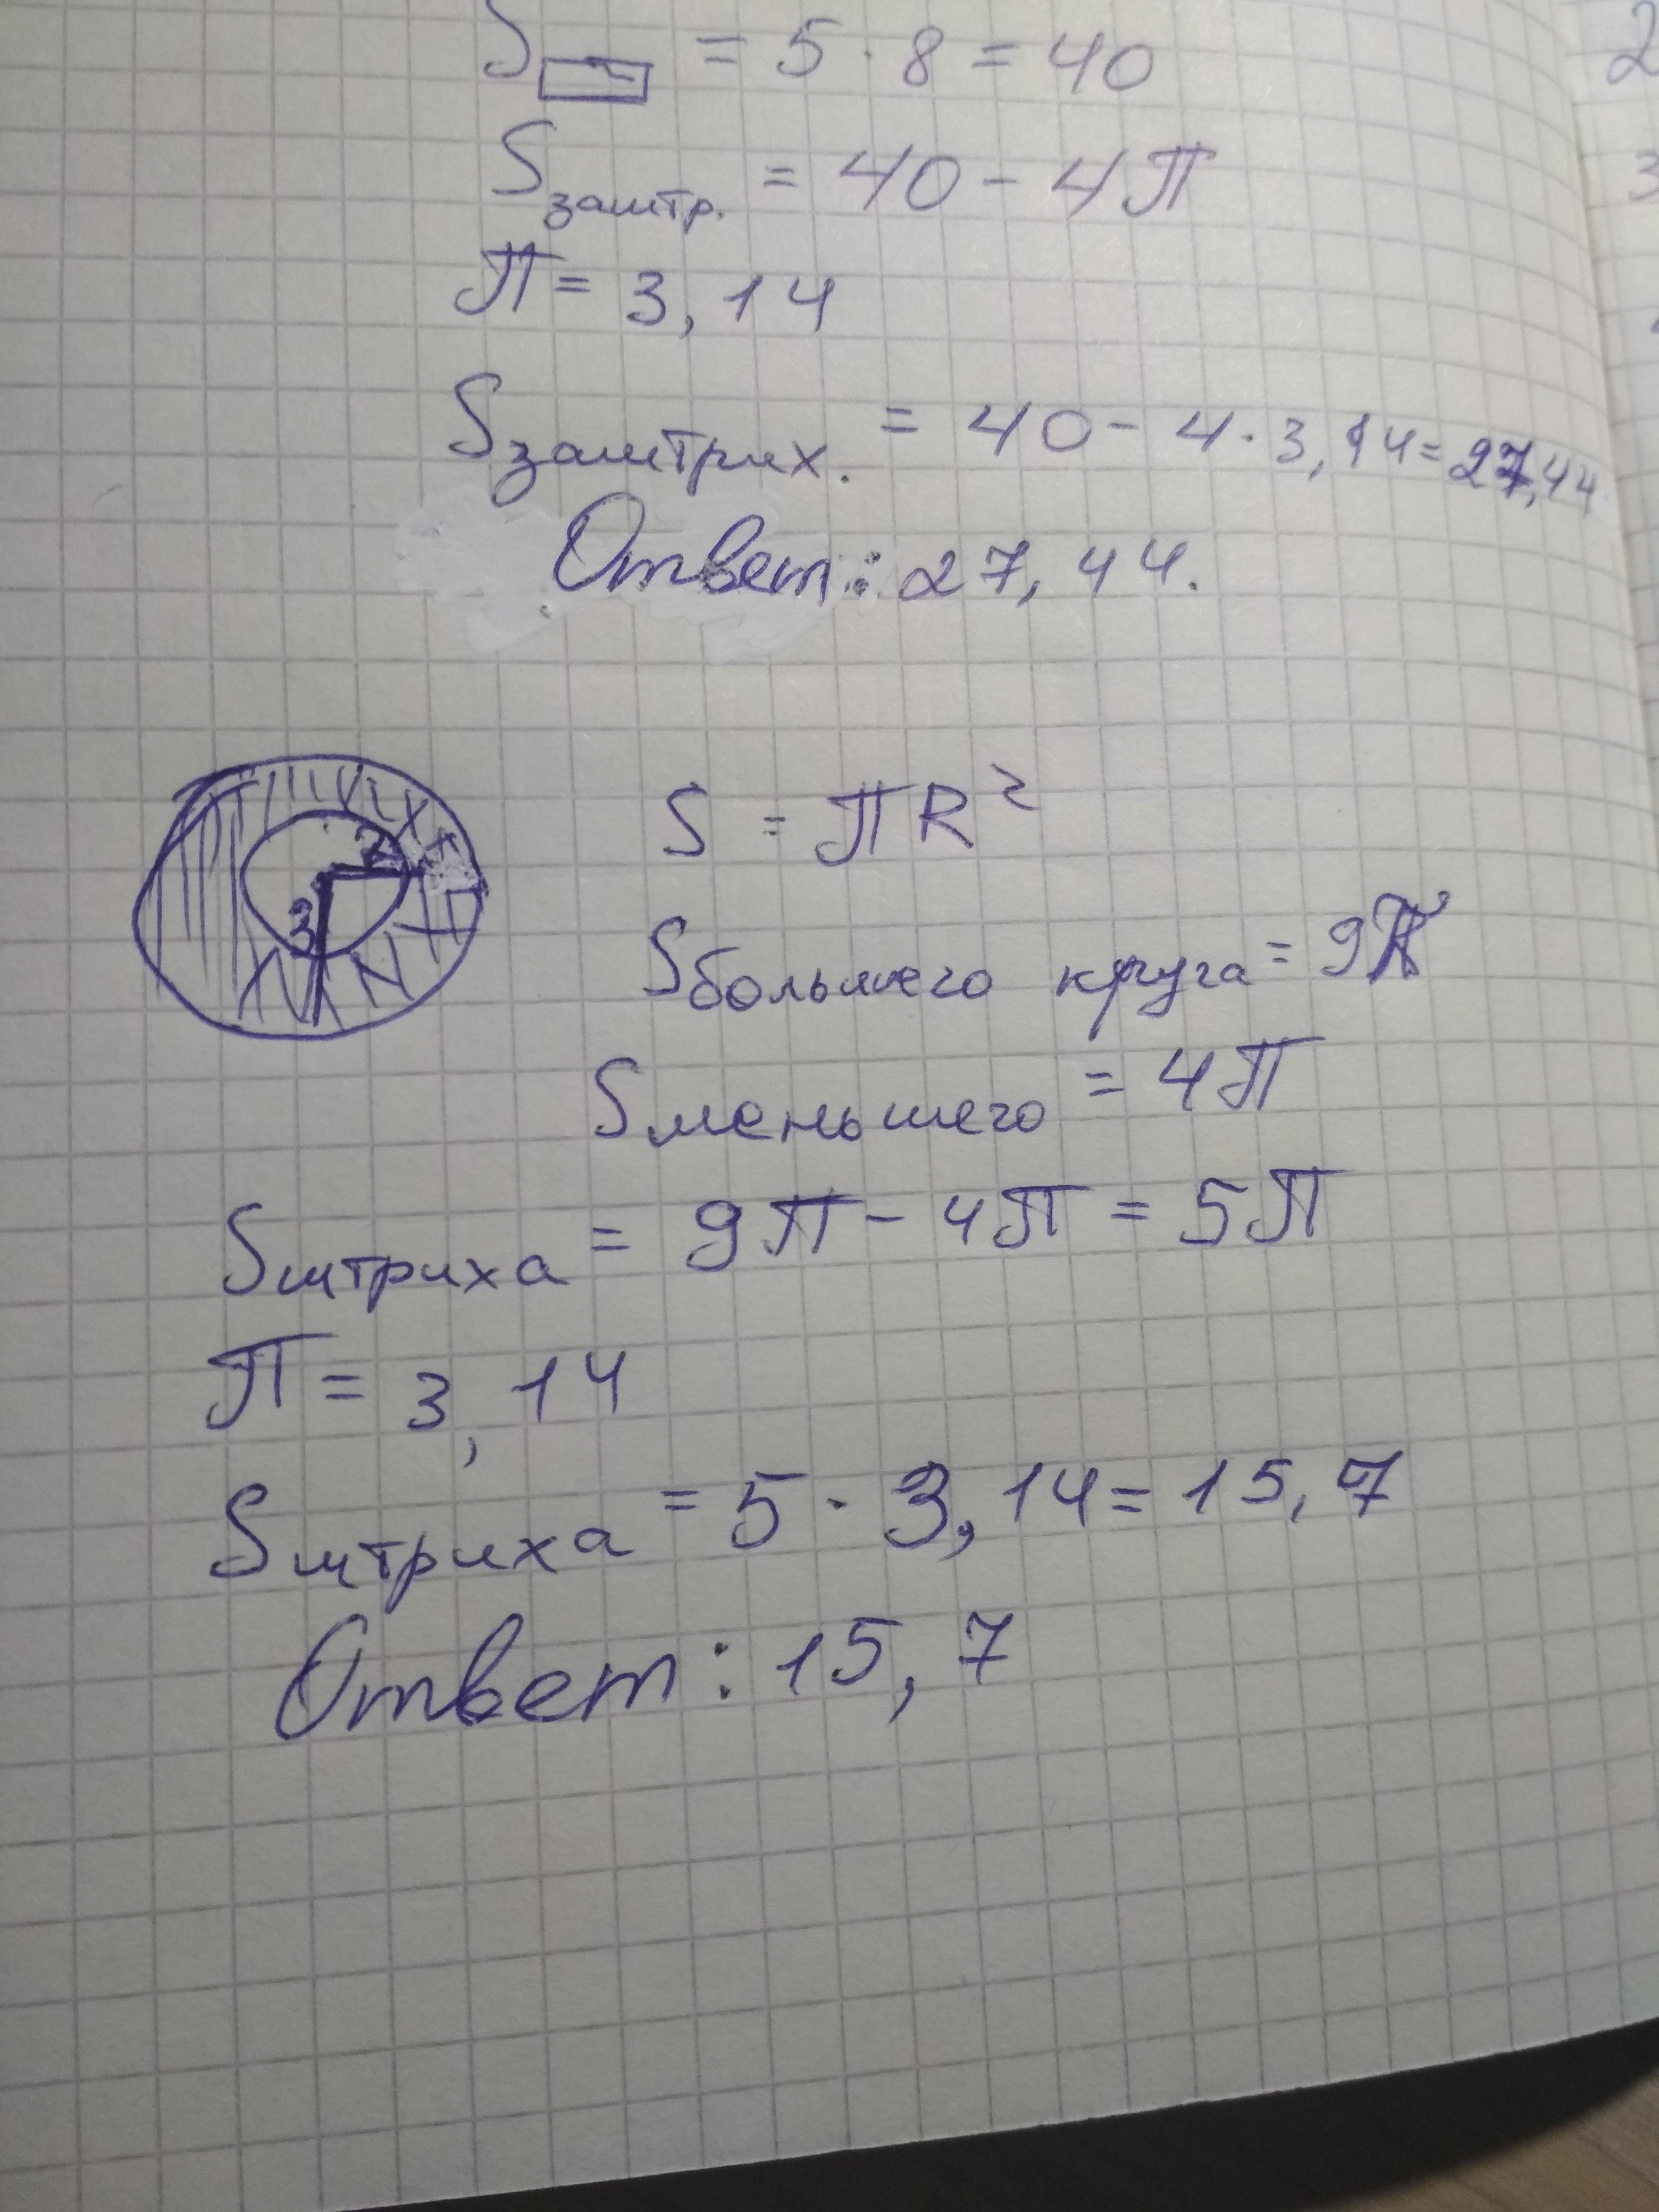 S▭ = 5 · 8 = 40
Sзаштр. = 40 - 4П
П = 3,14
Sзаштрих. = 40 - 4 · 3,14 = 27,44
Ответ: 27,44.
2
3
S = ПR²
Sбольшего круга = 9П
Sменьшего = 4П
Sштриха = 9П - 4П = 5П
П = 3,14
Sштриха = 5 · 3,14 = 15,7
Ответ: 15,7